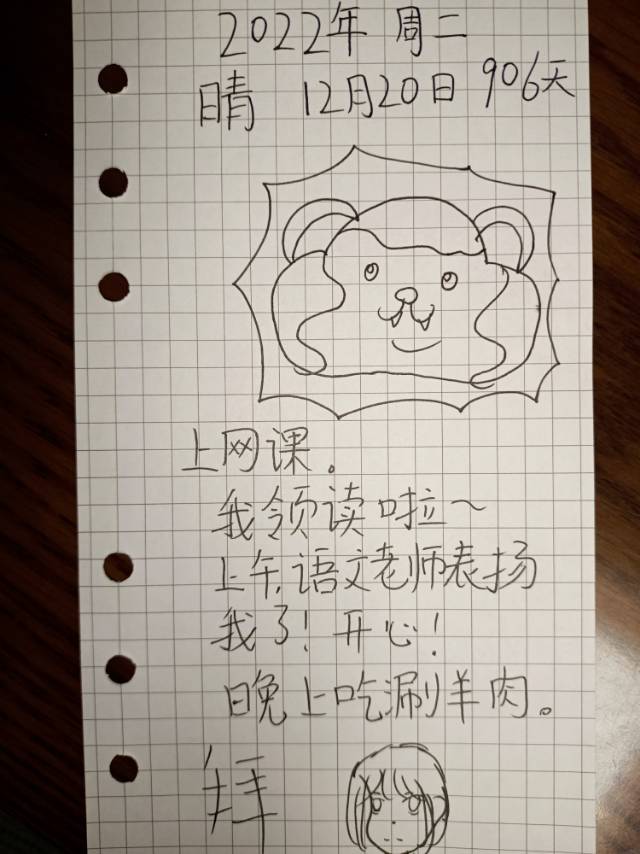 2022年 周二
晴 12月20日 906天
上网课。
我领读啦~
上午,语文老师表扬
我了!开心!
晚上吃涮羊肉。
拜